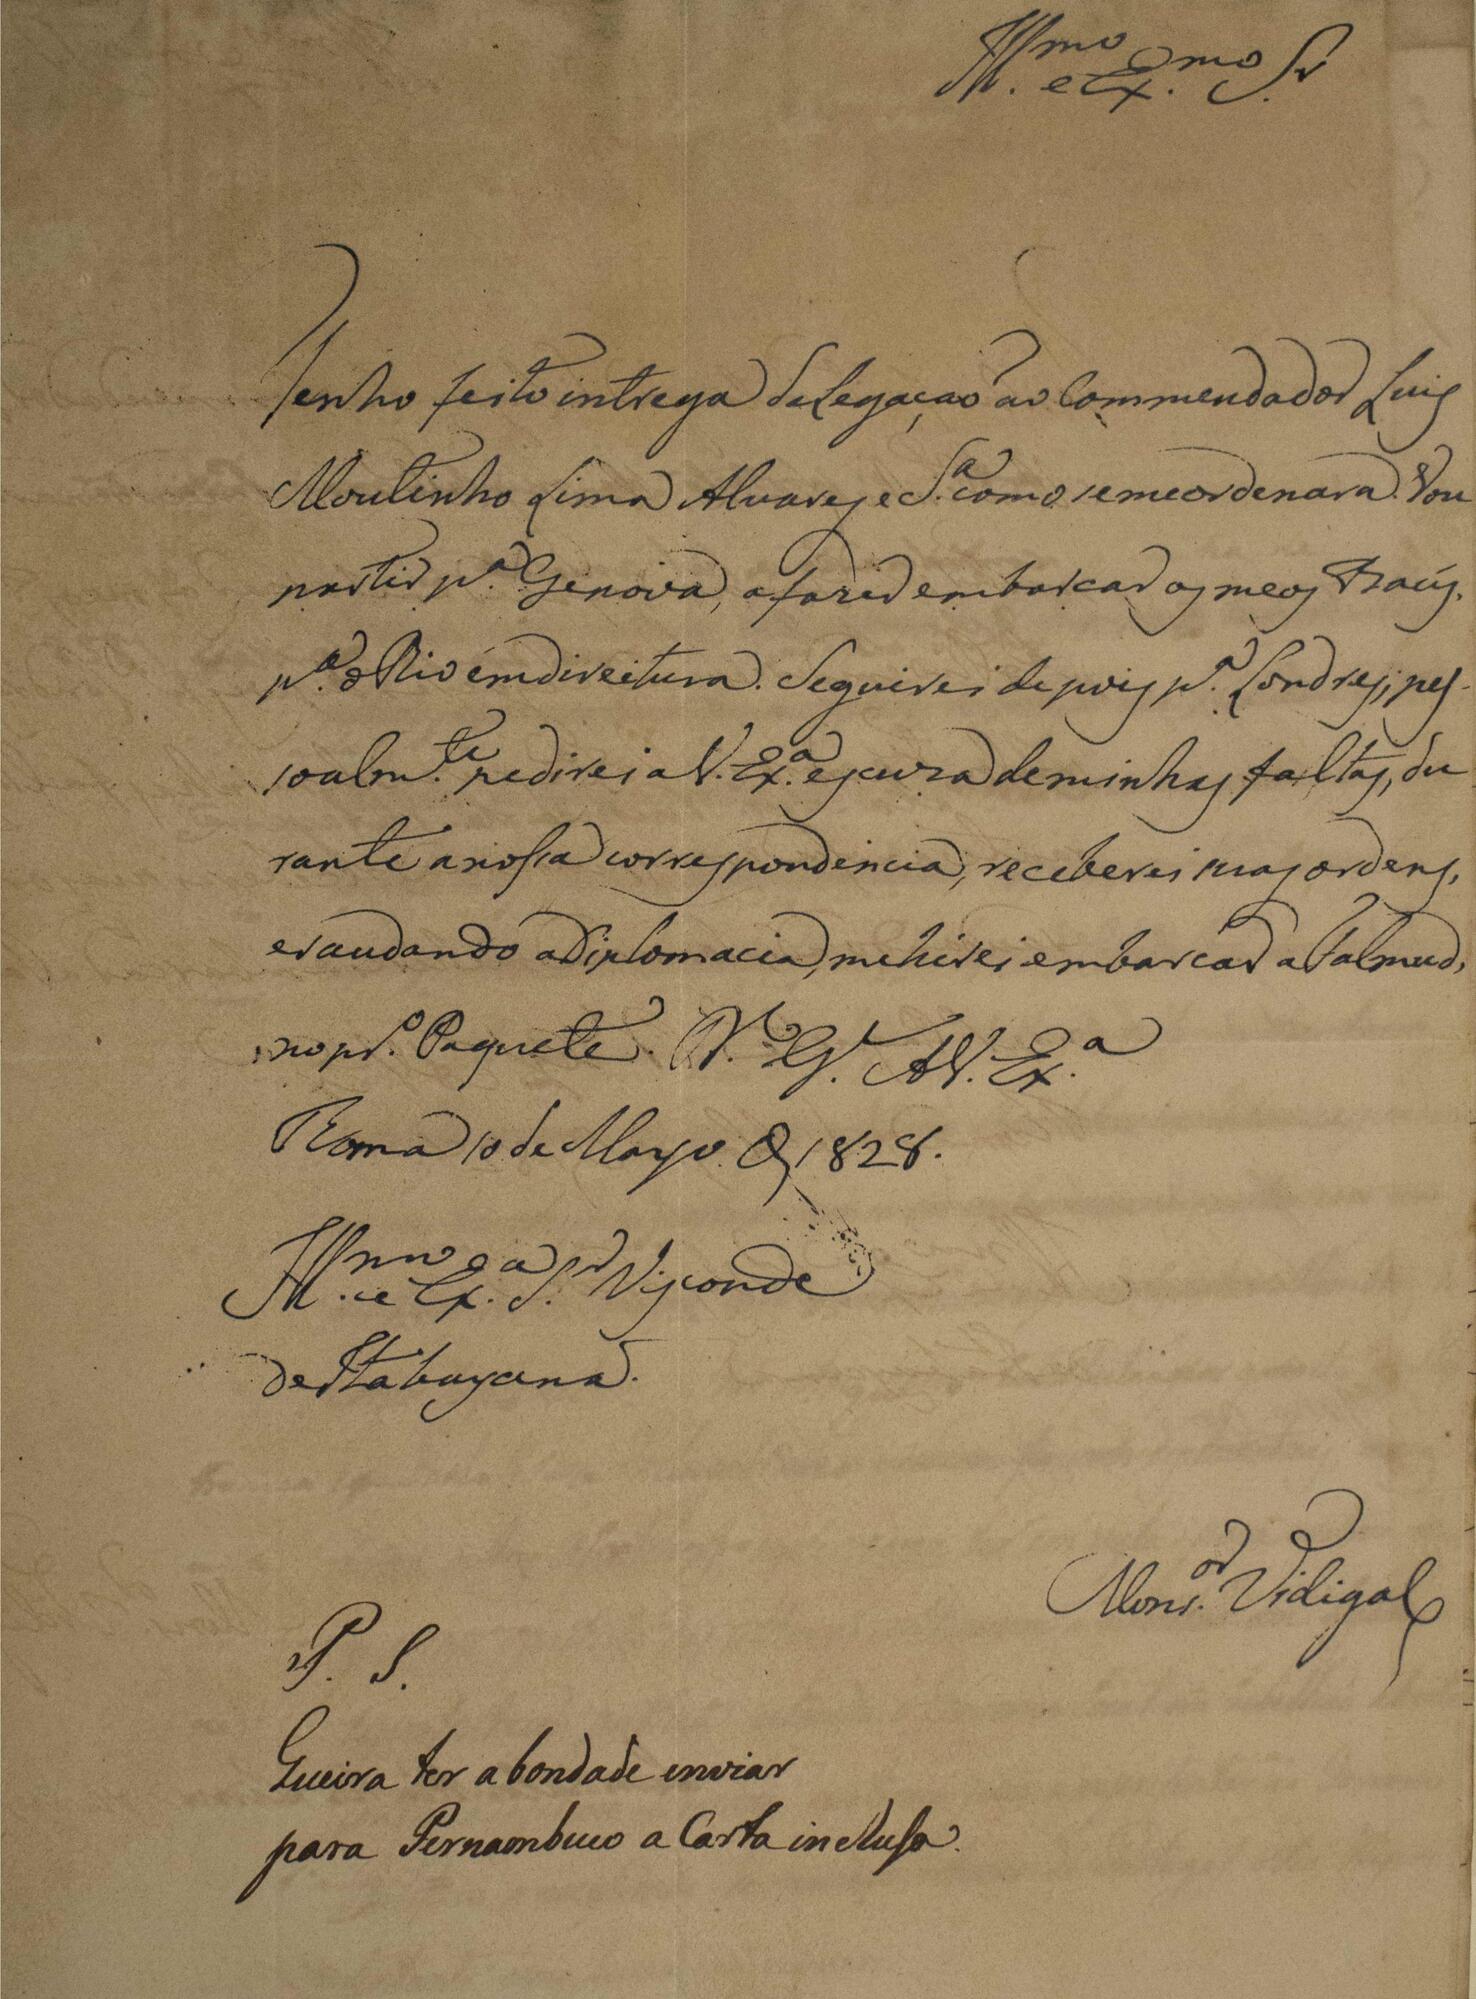 Ill.mo e Ex.mo Sr
Tenho feito intrega da legação ao Commendador Luis
Moutinho Lima Alvares e S.a como se me ordenara. Vou
partir p.a Genova, a fazer embarcar os meos Baús,
p.a o Rio em direitura. Seguirei depois p.a Londres, pes-
soalm.te pedirei a V. Ex.a escuza de minhas faltas, du
rante a nossa correspondencia, receberei suas ordens,
e saudando a Diplomacia, me hirei embarcar a Falmud,
no pr.o Paquete. D.s G.e A V. Ex.a
Roma 10 de Março D 1828.
Ill.mo e Ex. S.r Visconde
de Itabayana.
Mons.or Vidigal
P. S.
Queira ter a bondade enviar
para Pernambuco a Carta inclusa.